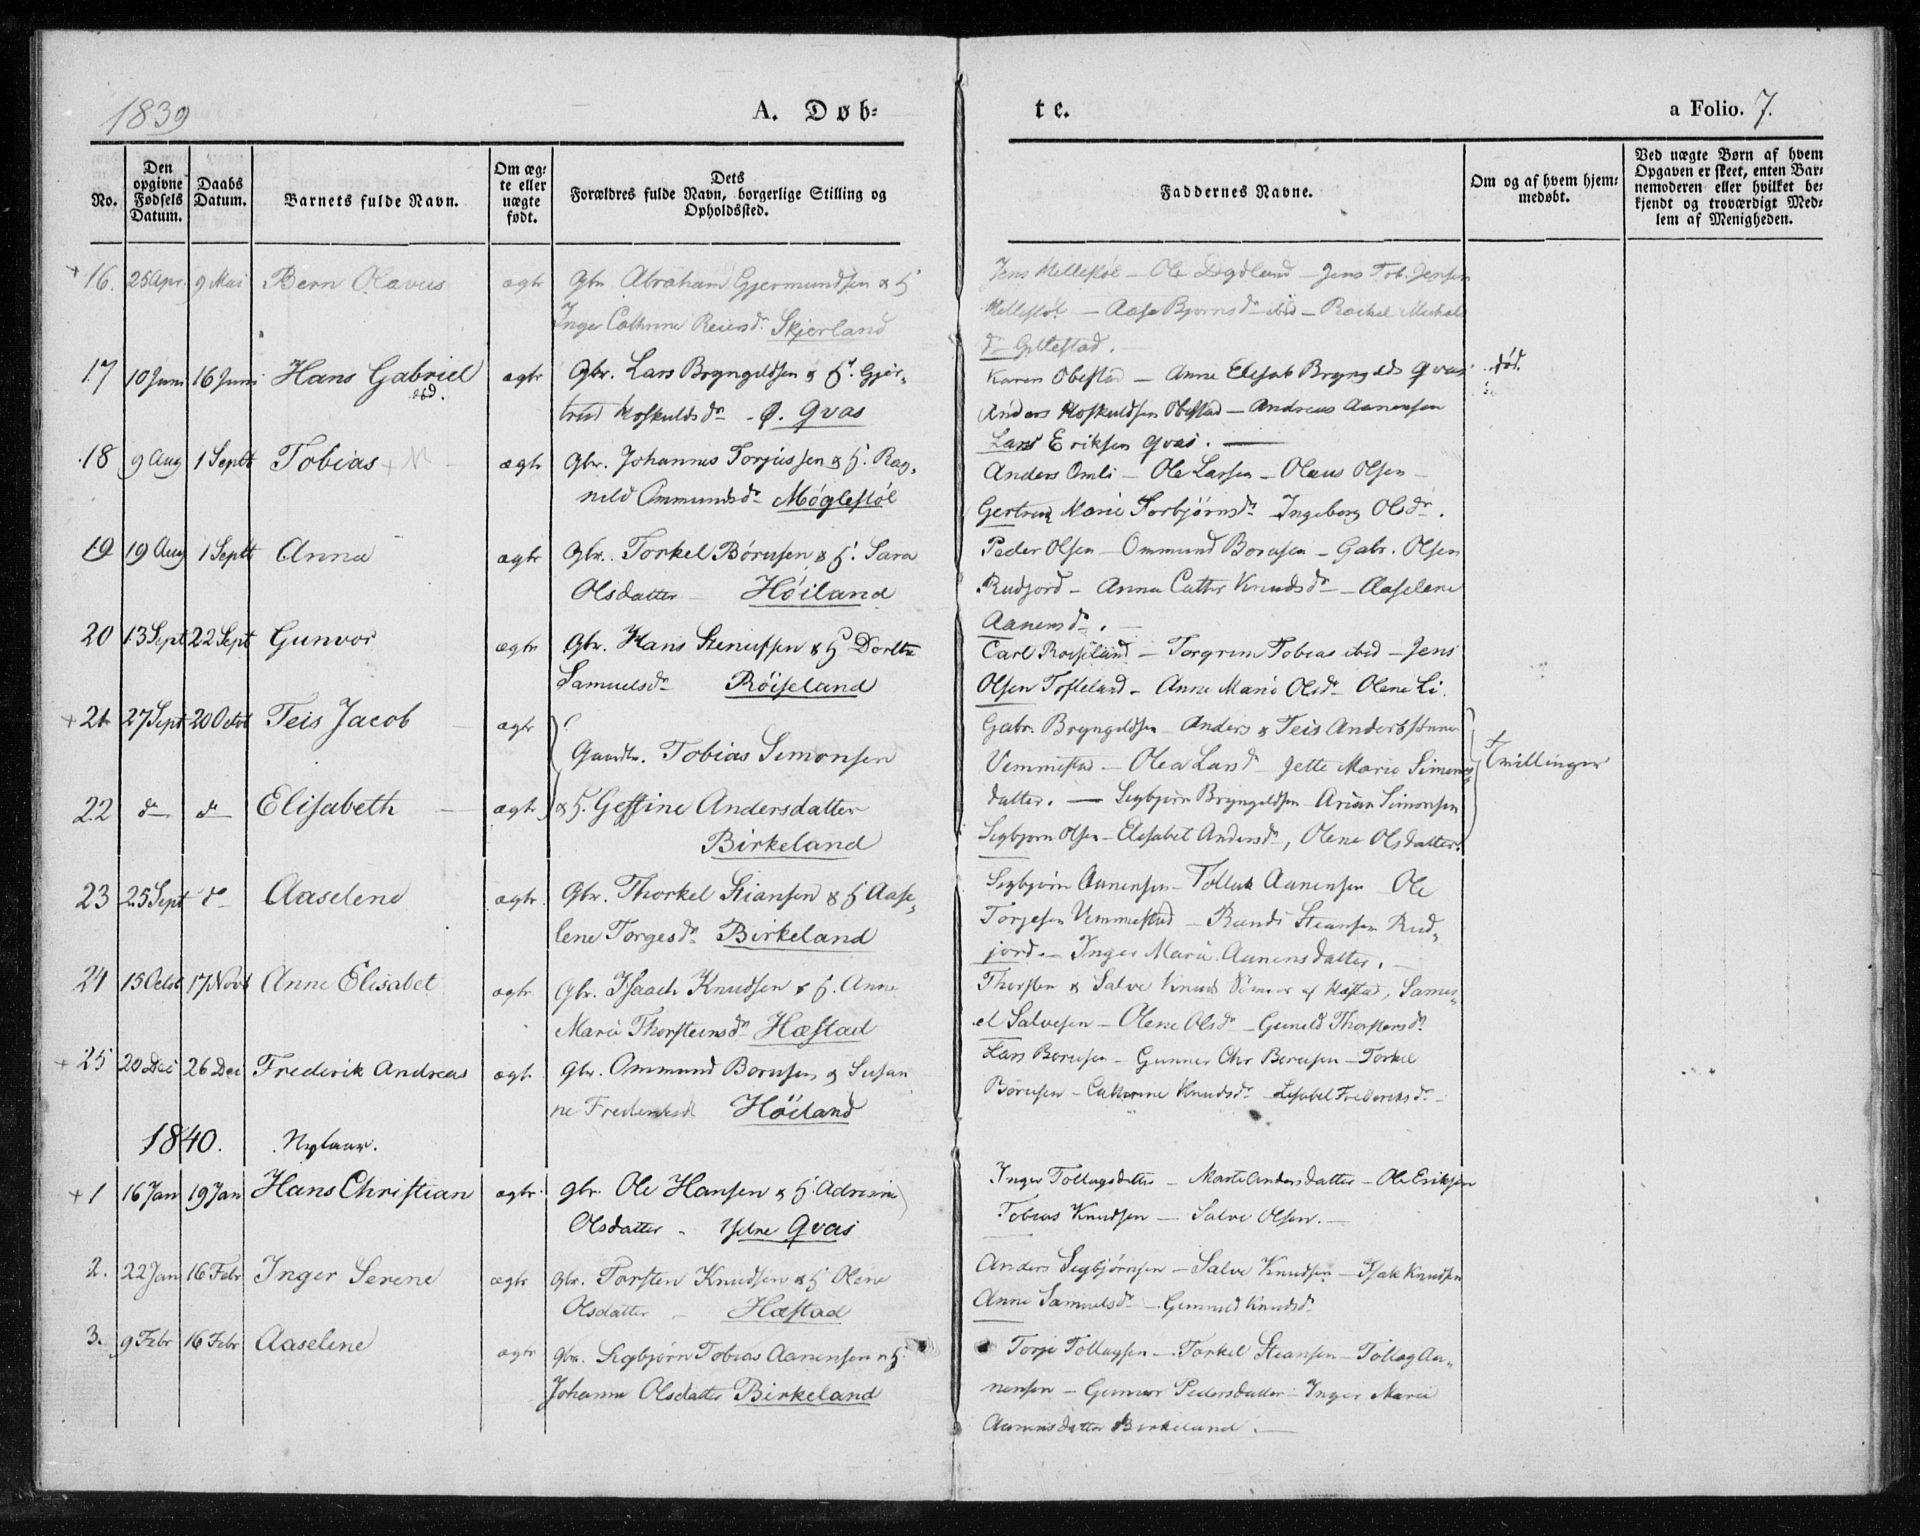 1839
A. Døb-
te.
a Folio. 7.
No.
Den opgivne Fødsels Datum.
Daabs Datum.
Barnets fulde Navn.
Om ægte eller uægte født.
Dets Forældres fulde Navn, borgerlige Stilling og Opholdssted.
Faddernes Navne.
Om og af hvem hjemmedøbt.
Ved uægte Børn af hvem Opgaven er skeet, enten Barnemoderen eller hvilket bekjendt og troværdigt Medlem af Menigheden.
+ 16. 25 Apr. 9 Mai Bern Olavus ægte Gbr. Abraham Gjermundsen & H
Inger Cathrine Reiersdr. Skjerland
Jens Mellestøl – Ole Dydland – Jens Tob. Jensen
Mellestøl – Aase Bjørnsdr ibid – Rachel Michals
dr Gyllestad.
17 10 Juni 16 Juni Hans Gabriel ægte Gbr. Lars Bryngeldsen & H. Gjer-
død.
trud Hoskuldsdr – Ø. Qvas
Karen Obestad – Anne Elisab Bryngelds Qvas død.
Anders Hoskuldsen Obestad – Andreas Aanensen
Lars Eriksen Qvas. –
18 9 Aug 1 Sept Tobias ægte Gbr. Johannes Torjussen & H. Rag-
nild Ommundsdr Møglestøl
Anders Omli – Ole Larsen – Olaus Olsen –
Gertrud Marie Torbjørnsdr Ingeborg Olsdr.
19 19 Aug 1 Sept Anna ægte Gbr. Torkel Børusen & H. Sara
Olsdatter – Höiland
Peder Olsen – Ommund Borusen – Gabr. Olsen
Rudjord – Anna Cathr Knudsdr – Aaselene
Aanensdr. –
20 13 Sept 22 Sept Gunvor ægte Gbr. Hans Stenersen & H Dorthe
Samuelsdr Röiseland
Carl Roiseland – Torgrim Tobias ibid – Jens
Olsen Tofteland – Anne Marie Olsdr – Olene Li.
+ 21 27 Sept 20 Octob Teis Jacob – ægte
Gaardbr. Tobias Simonsen
Gabr. Bryngeldsen – Anders & Teis Anders Sønner
Vemmestad – Olea Larsdr – Jette Marie Simons
Tvillinger
22 dr dr Elisabeth – ægte & H. Gessine Andersdatter
Birkeland
datter. – Sigbjørn Bryngeldsen – Arian Simonsen
Sigbjørn Olsen – Elisabet Andersdr, Olene Olsdatter.
23 25 Sept dr Aaselene ægte Gbr. Thorkel Stiansen & H Aase-
lene Torgesdr Birkeland
Sigbjørn Aanensen – Tollak Aanensen – Ole
Torjesen Vemmestad – Randi Steansen Rud-
jord. – Inger Marie Aanensdatter. –
24 15 Octob 17 Novb Anne Elisabet ægte Gbr. Isaach Knudsen & H. Anne
Marie Thorsteinsdr Hæstad
Thorsten & Salve Knuds Sønner af Hæstad, Samu-
el Salvesen – Olene Olsdr – Gunild Thorstensdr
+ 25 20 Dec 26 Dec Frederik Andreas ægte Gbr. Ommund Borusen & Susan
ne Frederiksd Höiland
Lars Borusen – Gunner Chr Borusen – Torkel
Börusen – Cathrine Knudsdr – Lisabet Frederiksdr –
1840. Nytaar.
+ 1 16 Jan 19 Jan Hans Christian ægte Gbr Ole Hansen & H. Adrisine
Olsdatter – Ydre Qvas
Inger Tollagsdatter – Marte Andersdatter – Ole Eriksen
Tobias Knudsen – Salve Olsen. –
2. 22 Jan 16 Febr Inger Serene ægte Gbr. Torsten Knudsen & H Olene
Olsdatter – Hæstad
Anders Sigbjørnsen – Salve Knudsen – Isak Knudsen
Anne Samuelsdr – Gunuld Knudsdr
3. 9 Febr 16 Febr Aaselene ægte Gbr. Sigbjørn Tobias Aanensen & H.
Johanne Olsdatter Birkeland
Torje Tollagsen – Torkel Steansen – Tollag Aa-
nensen – Gunvor Pedersdatter – Inger Marie
Aanensdatter Birkeland. –